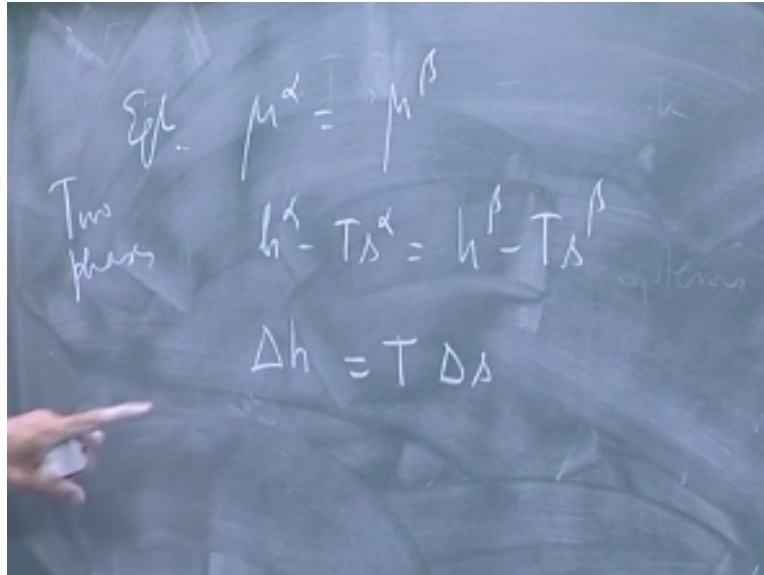 Eql. μ^α = μ^β
Two
phases
h^α - Ts^α = h^β - Ts^β
Δh = T Δs